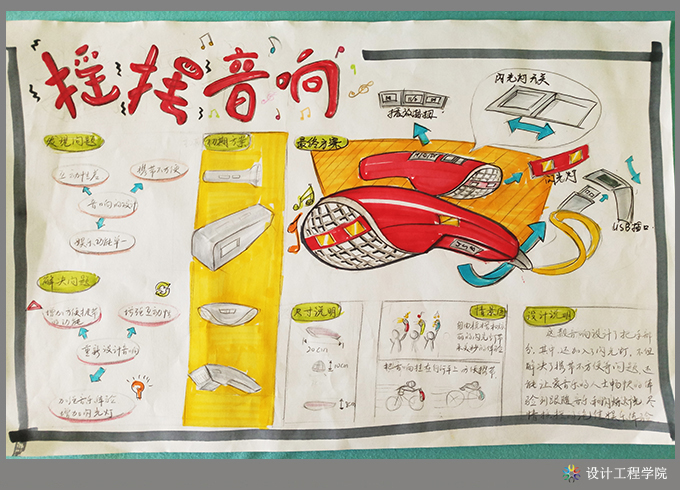 摇摆音响
发现问题
互动性差
携带不方便
音响的设计
娱乐功能单一
解决问题
增加方便携带
的功能
增强互动性
重新设计音响
加强音乐体验
增加闪光灯
初期方案
最终方案
播放按钮
闪光灯开关
闪光灯
USB接口
尺寸说明
20cm
10cm
情景图
把音响挂在自行车上方便携带
设计说明
这款音响设计了把手部
分,其中还加入了闪光灯,不但
解决了携带不方便等问题,还
能让爱音乐的人士
设计工程学院